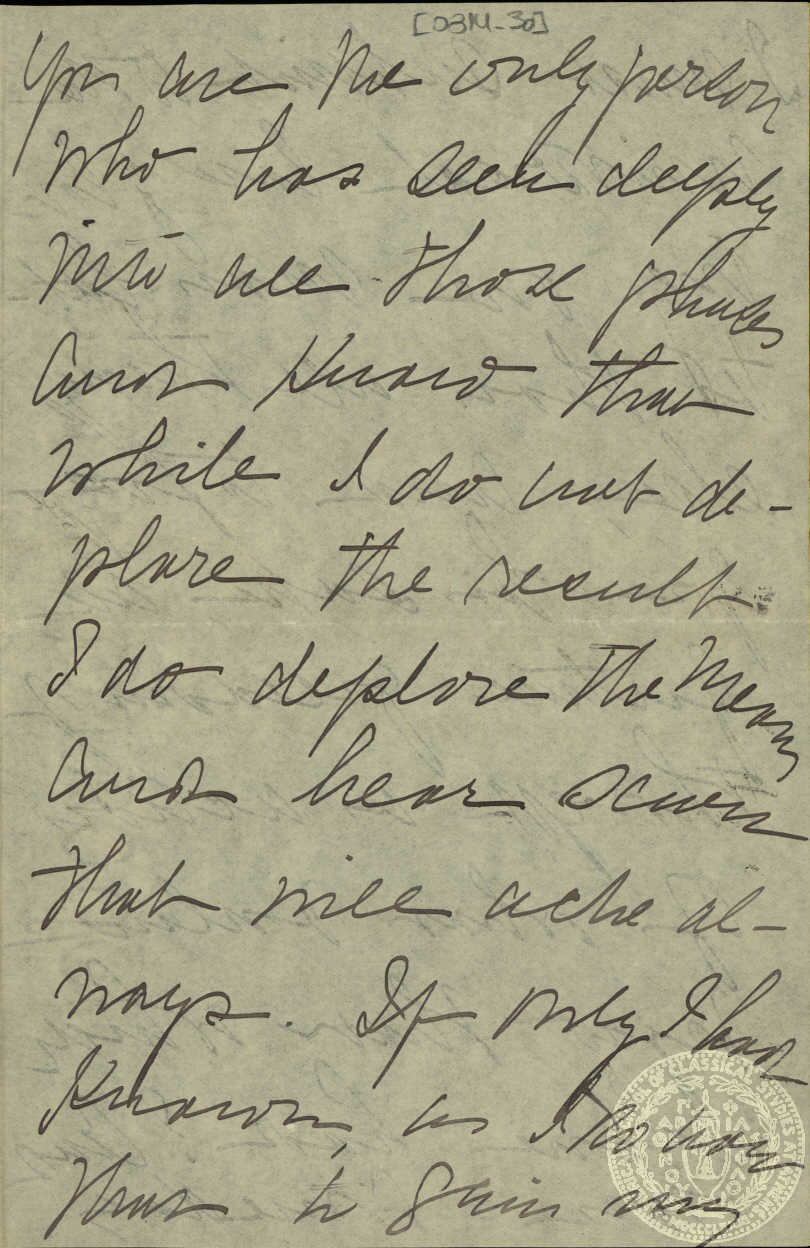 [03M-30]
You are the only person
who has seen deeply
into all those phases
and know that
while I do not de-
plore the result
I do deplore the means
and bear scars
that will ache al-
ways. If only I had
known, as I do now
that to gain my